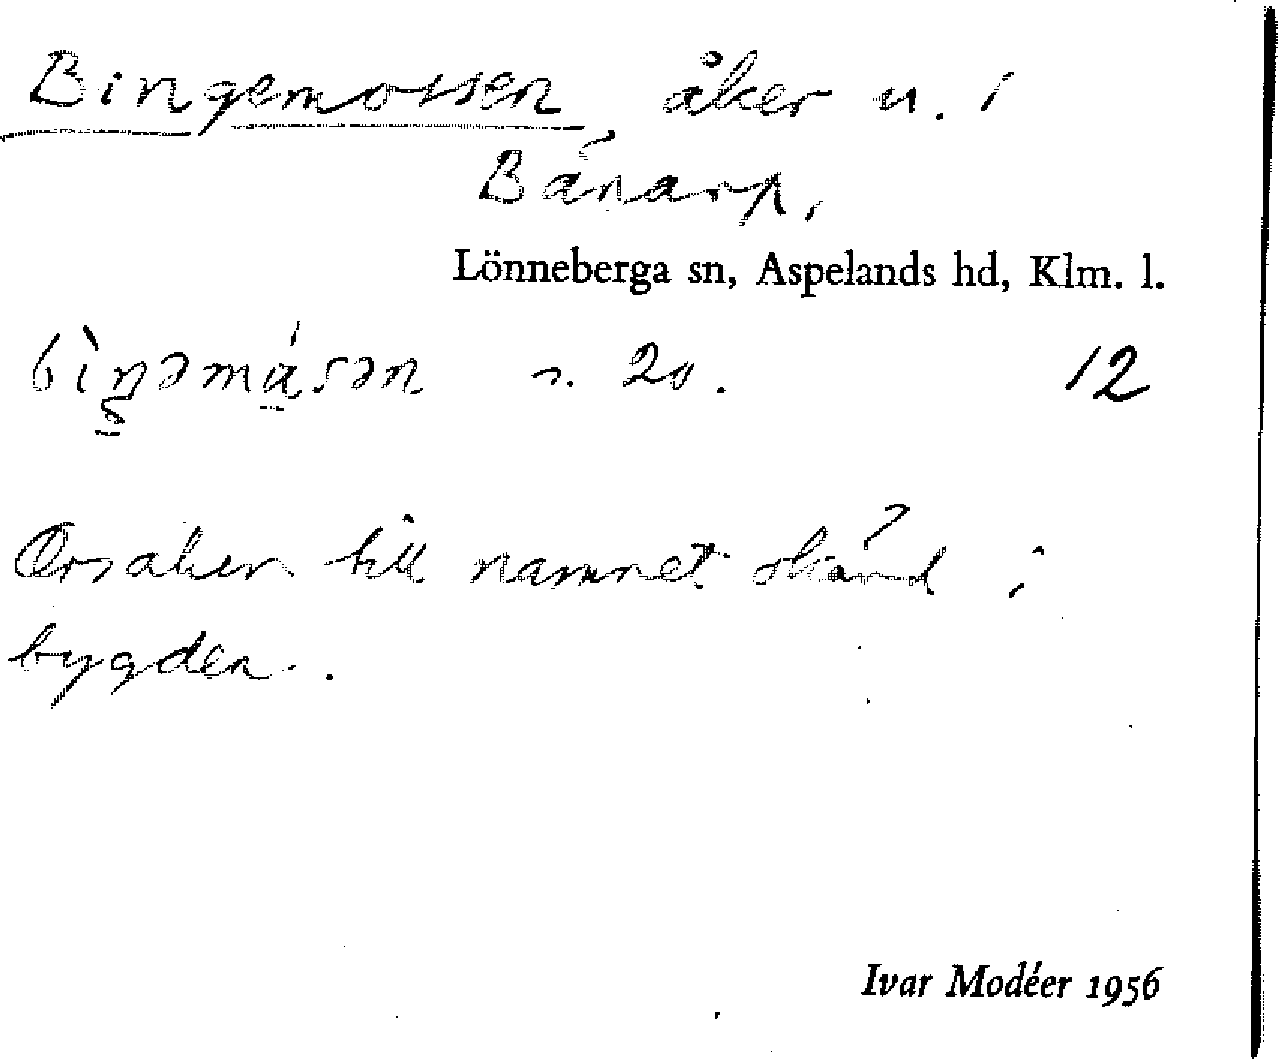 Bingemossen, åker n. i
Bånarp,
Lönneberga sn, Aspelands hd, Klm. l.
bìŋəmásən 20. 12
Orsaken till namnet okänd i
bygden.
Ivar Modéer 1956